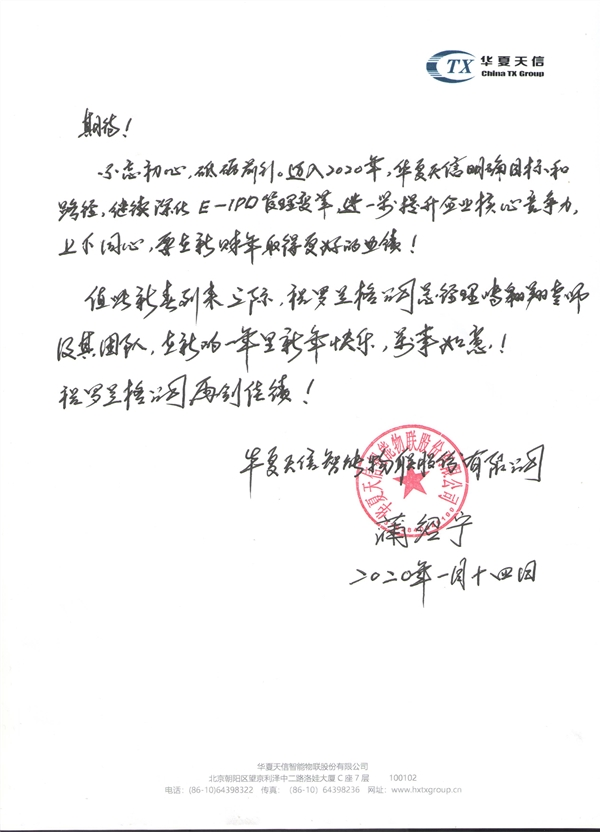 TX 华夏天信
China TX Group
期待！
不忘初心，砥砺前行。迈入2020年，华夏天信明确目标和
路径，继续深化E-IPD管理变革，进一步提升企业核心竞争力，
上下同心，要在新财年取得更好的业绩！
值此新春到来之际，祝罗兰格公司总经理 翱翔老师
及其团队，在新的一年里新年快乐，万事如意！
祝罗兰格公司再创佳绩！
华夏天信智能物联股份有限公司
华夏天信智能物联股份有限公司
蒲经宁
2020年一月十四日
华夏天信智能物联股份有限公司
北京朝阳区望京利泽中二路洛娃大厦 C 座 7 层 100102
电话：(86-10)64398322 传真：(86-10) 64398236 网址：www.hxtxgroup.cn